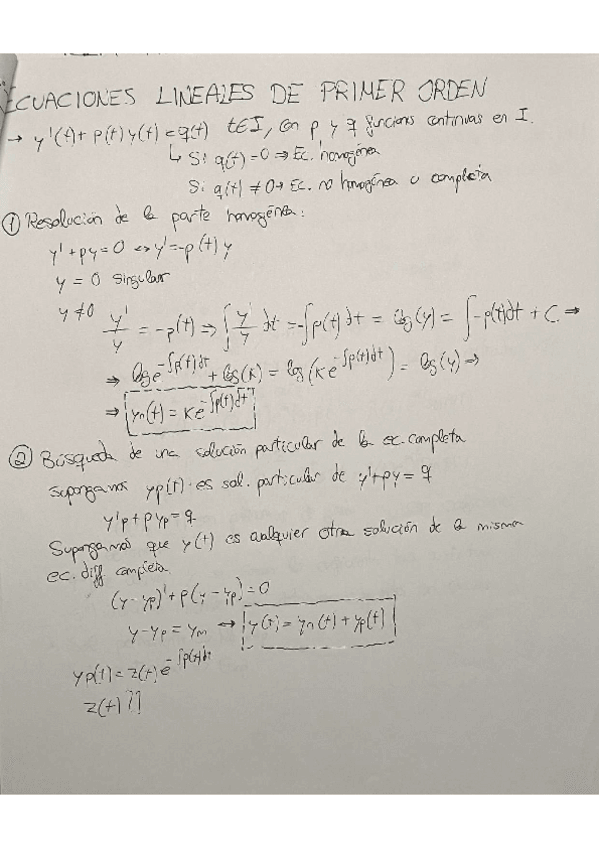 ECUACIONES LINEALES DE PRIMER ORDEN
→ y'(t) + p(t) y(t) = q(t) t∈I, con p y q funciones continuas en I.
↳ Si q(t) = 0 ⇒ Ec. homogénea
Si q(t) ≠ 0 → Ec. no homogénea o completa
① Resolución de la parte homogénea:
y' + py = 0 ⇔ y' = -p(t) y
y = 0 singular
y ≠ 0 y'/y = -p(t) ⇒ ∫ y'/y dt = -∫p(t) dt = log(y) = ∫-p(t)dt + C ⇒
⇒ log e^{-∫p(t)dt} + log(K) = log(K e^{-∫p(t)dt}) = log(y) ⇒
⇒ y_h(t) = K e^{-∫p(t)dt}
② Búsqueda de una solución particular de la ec. completa
supongamos yp(t) es sol. particular de y' + py = q
y'p + p yp = q
Supongamos que y(t) es cualquier otra solución de la misma
ec. diff completa
(y - yp)' + p(y - yp) = 0
y - yp = y_h ↔ y(t) = y_h(t) + yp(t)
yp(t) = z(t) e^{-∫p(t)dt}
z(t) ??